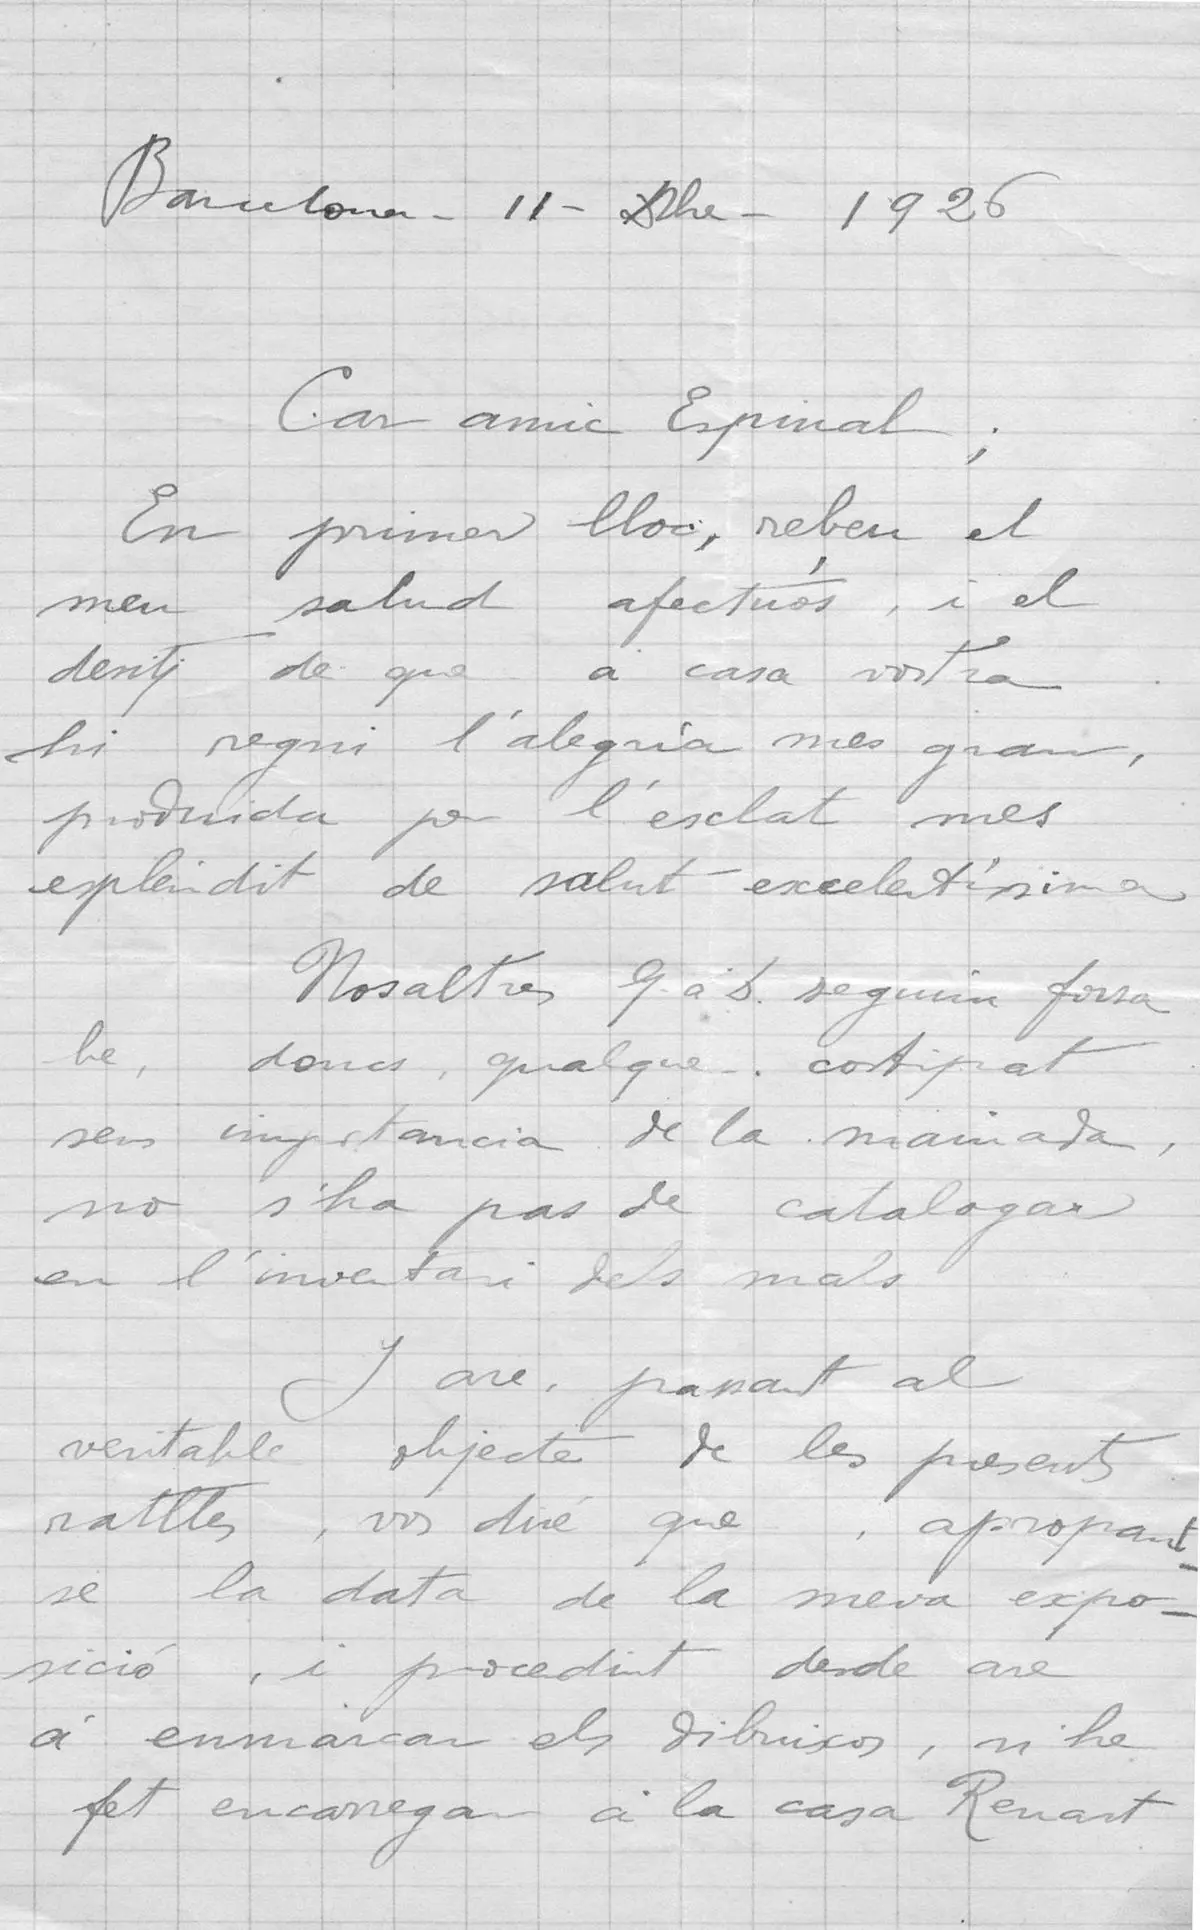 Barcelona - 11 - Dbre - 1926
Car amic Espinal ;
En primer lloc, rebeu el
meu salud afectuós , i el
desitj de que á casa vostra
hi regni l'alegria mes gran,
produida per l'esclat mes
esplèndit de salut excelentíssima
Nosaltres G. a D. seguim forsa
be, doncs, qualque costipat
sens importancia de la mainada,
no s'ha pas de catalogar
en l'inventari dels mals
I are, passant al
veritable objecte de les presents
rattlles, vos diré que , apropant-
se la data de la meva expo-
sició , i procedint desde are
á enmarcar els dibuixos,
fet encarregar á la casa Renart